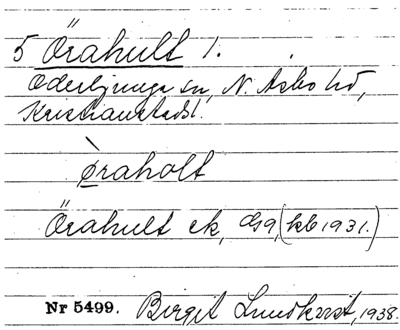 5 Örahult 1.
Oderljunga sn, N. Åsbo hd,
Kristianstads l.
ø̀raholt
Örahult ek, G9, (kb 1931.)
Nr 5499. Birgit Lundkvist, 1938.